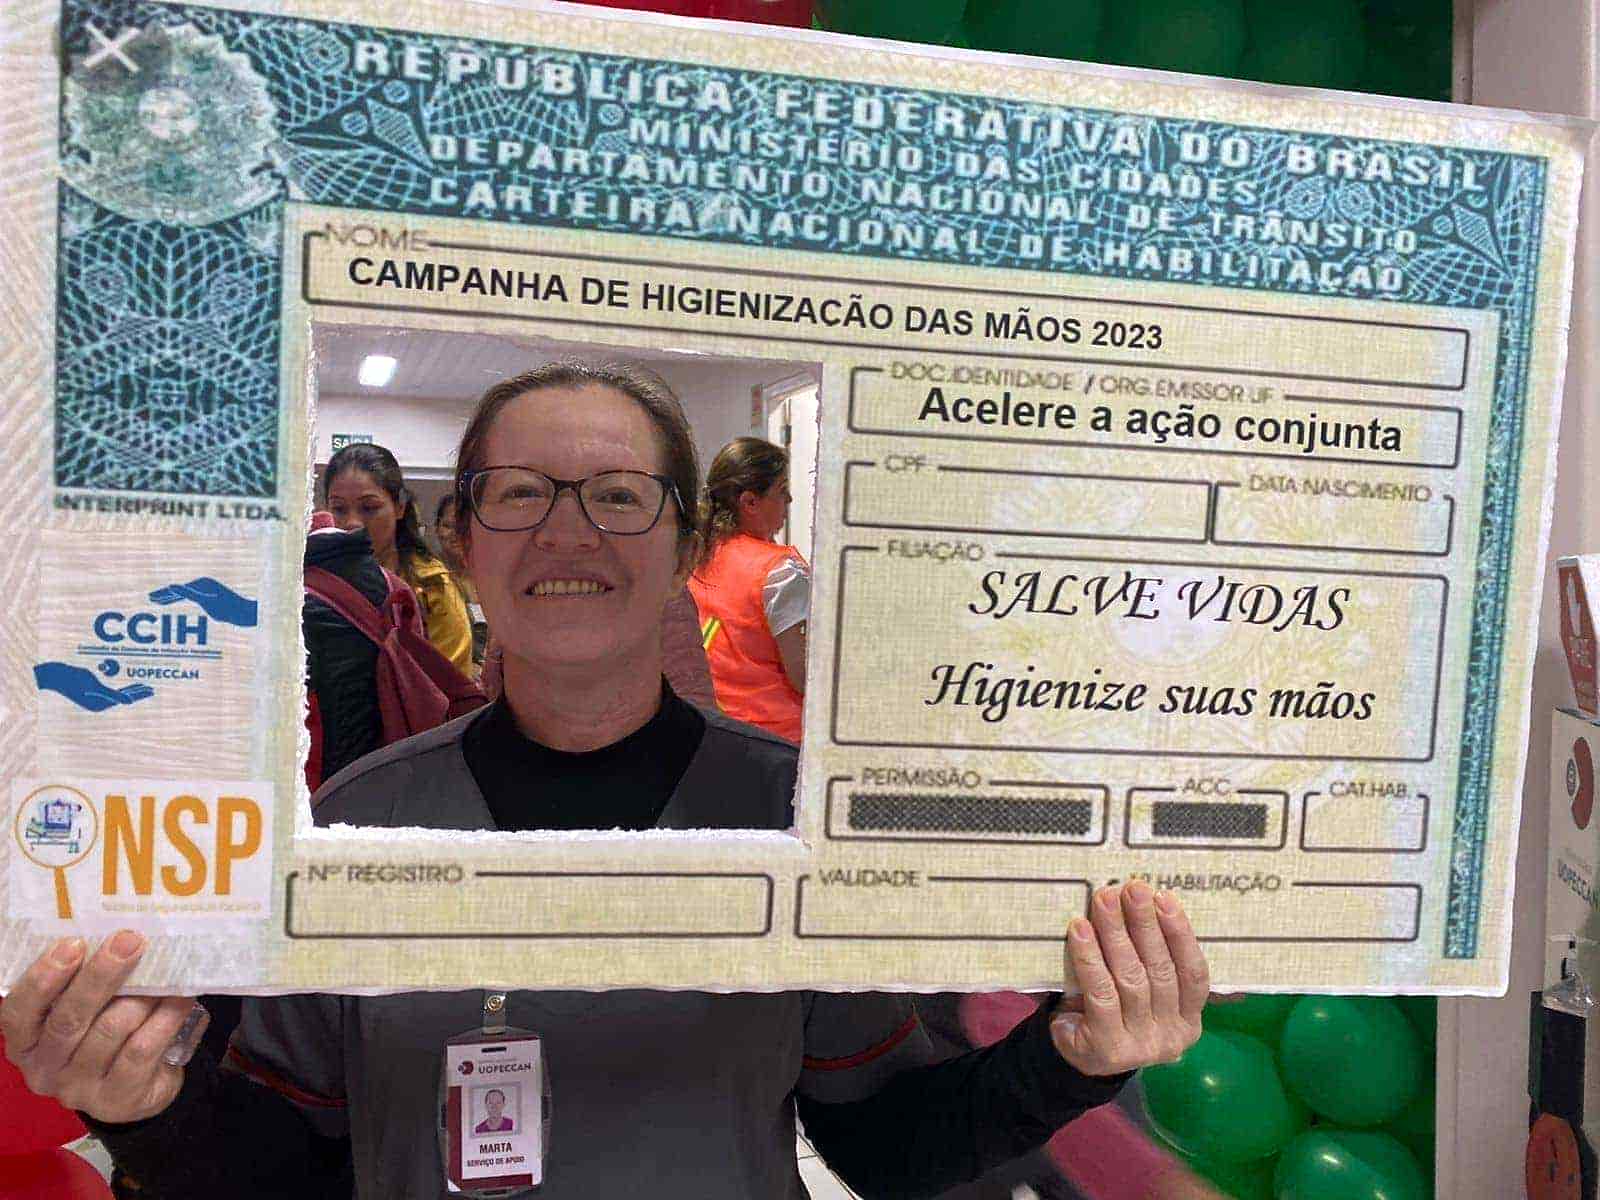 REPÚBLICA FEDERATIVA DO BRASIL
MINISTÉRIO DAS CIDADES
DEPARTAMENTO NACIONAL DE TRÂNSITO
CARTEIRA NACIONAL DE HABILITAÇÃO
NOME
CAMPANHA DE HIGIENIZAÇÃO DAS MÃOS 2023
DOC.IDENTIDADE / ORG.EMISSOR UF
Acelere a ação conjunta
CPF
DATA NASCIMENTO
FILIAÇÃO
SALVE VIDAS
Higienize suas mãos
PERMISSÃO
ACC
CAT.HAB.
Nº REGISTRO
VALIDADE
1ª HABILITAÇÃO
INTERPRINT LTDA.
CCIH
UOPECCAN
NSP
SAÍDA
UOPECCAN
MARTA
SERVIÇO DE APOIO
UOPECCAN